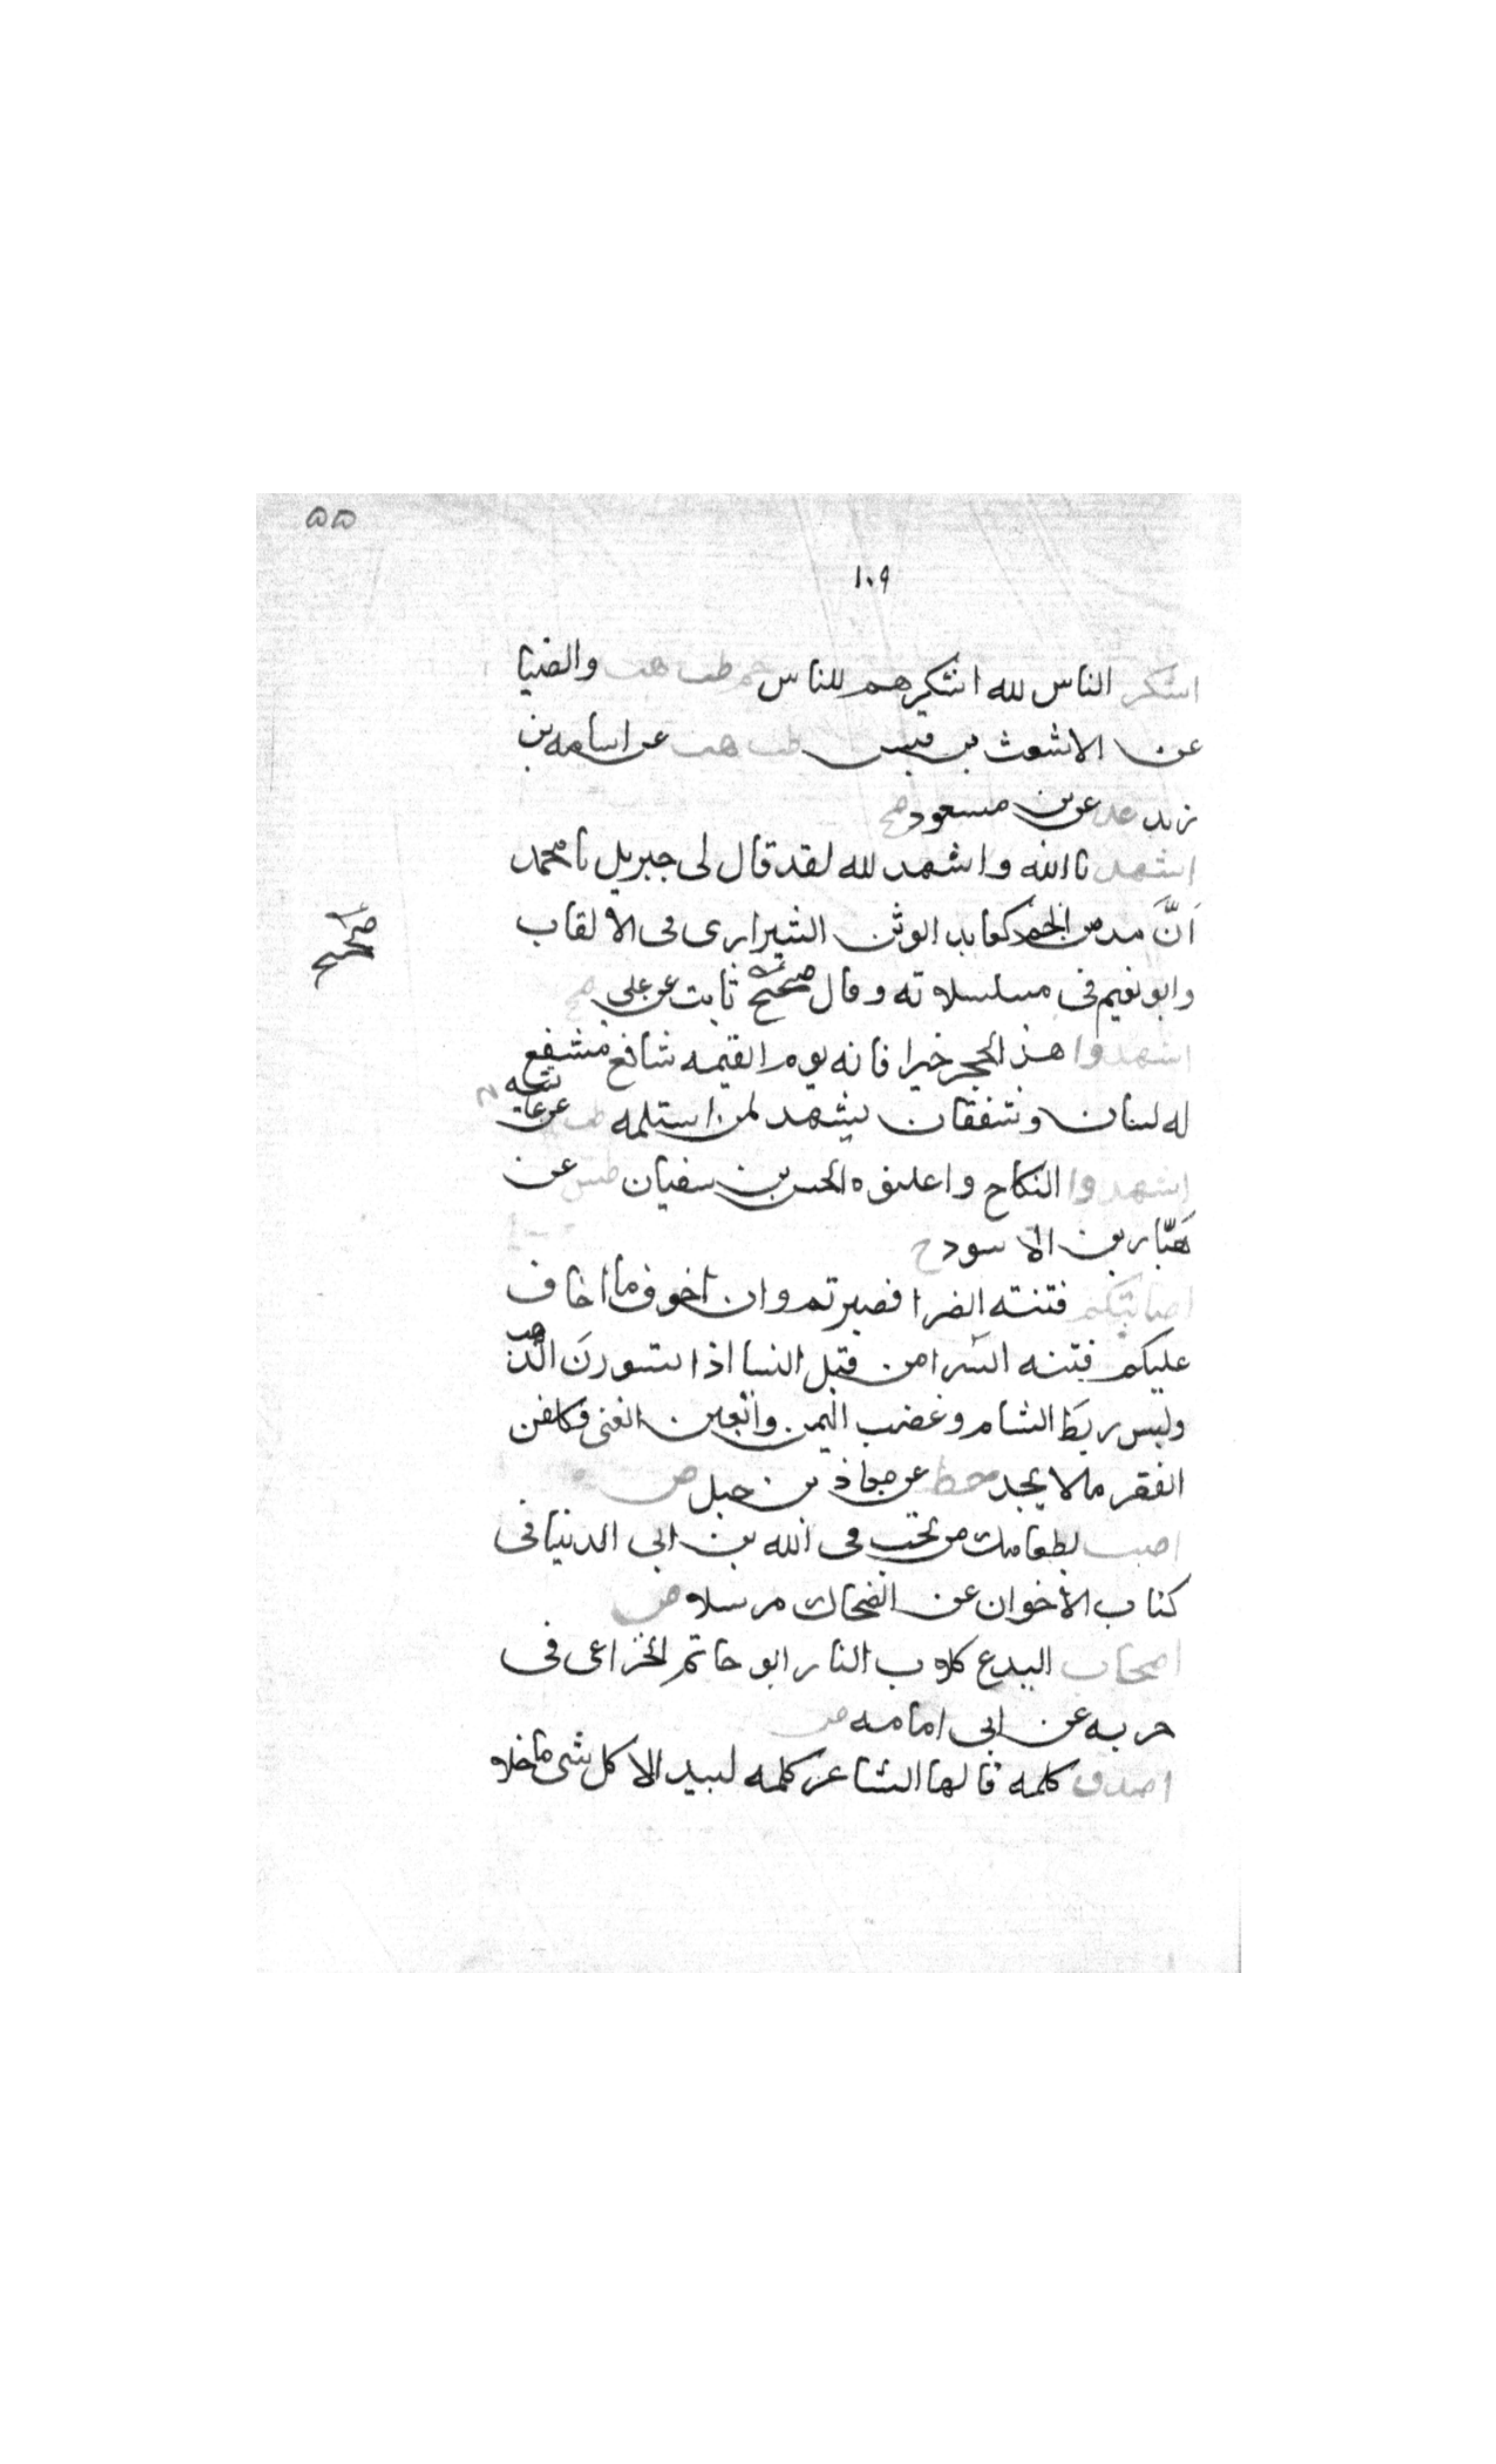 ٥٥
١٠٩
اشكر الناس لله اشكرهم للناس حم طب هب والضيا
عن الاشعث بن قيس طب هب عن اسامه بن
زيد عد عن بن مسعود صح
اشهد بالله واشهد لله لقد قال لى جبريل يا محمد
اَنَّ مدمن الخمر كعابد الوثن الشيرازى فى الالقاب
وابو نعيم فى مسلسلاته وقال صحيح ثابت عن على صح
صحيح
اشهدوا هذ الحجر خيرا فانه يوم القيمه شافع مشفع
له لسان وشفقان يشهد لمن استلمه طب عن عايشه
اشهدوا النكاح واعلنوه الحسن بن سفيان طس عن
هَبَّار بن الاسود ح
اصابتكم فتنته الضرا فصبرتم وان اخوف ما اخاف
عليكم فتنه السرا من قبل النسا اذا تسورنَ الذهب
ولبس ريط الشام وغضب اليمن واتعبن الغنى وكلفن
الفقر ما لا يجد خط عن معاذ بن جبل ض
اصب بطعامك من تحب فى الله بن ابى الدنيا فى
كتاب الاخوان عن الضحاك مرسلا ض
اصحاب البدع كلاب النار ابو حاتم الخزاعى فى
حربه عن ابى امامه ض
اصدق كلمه قالها الشاعر كلمه لبيد الا كل شى ما خلا